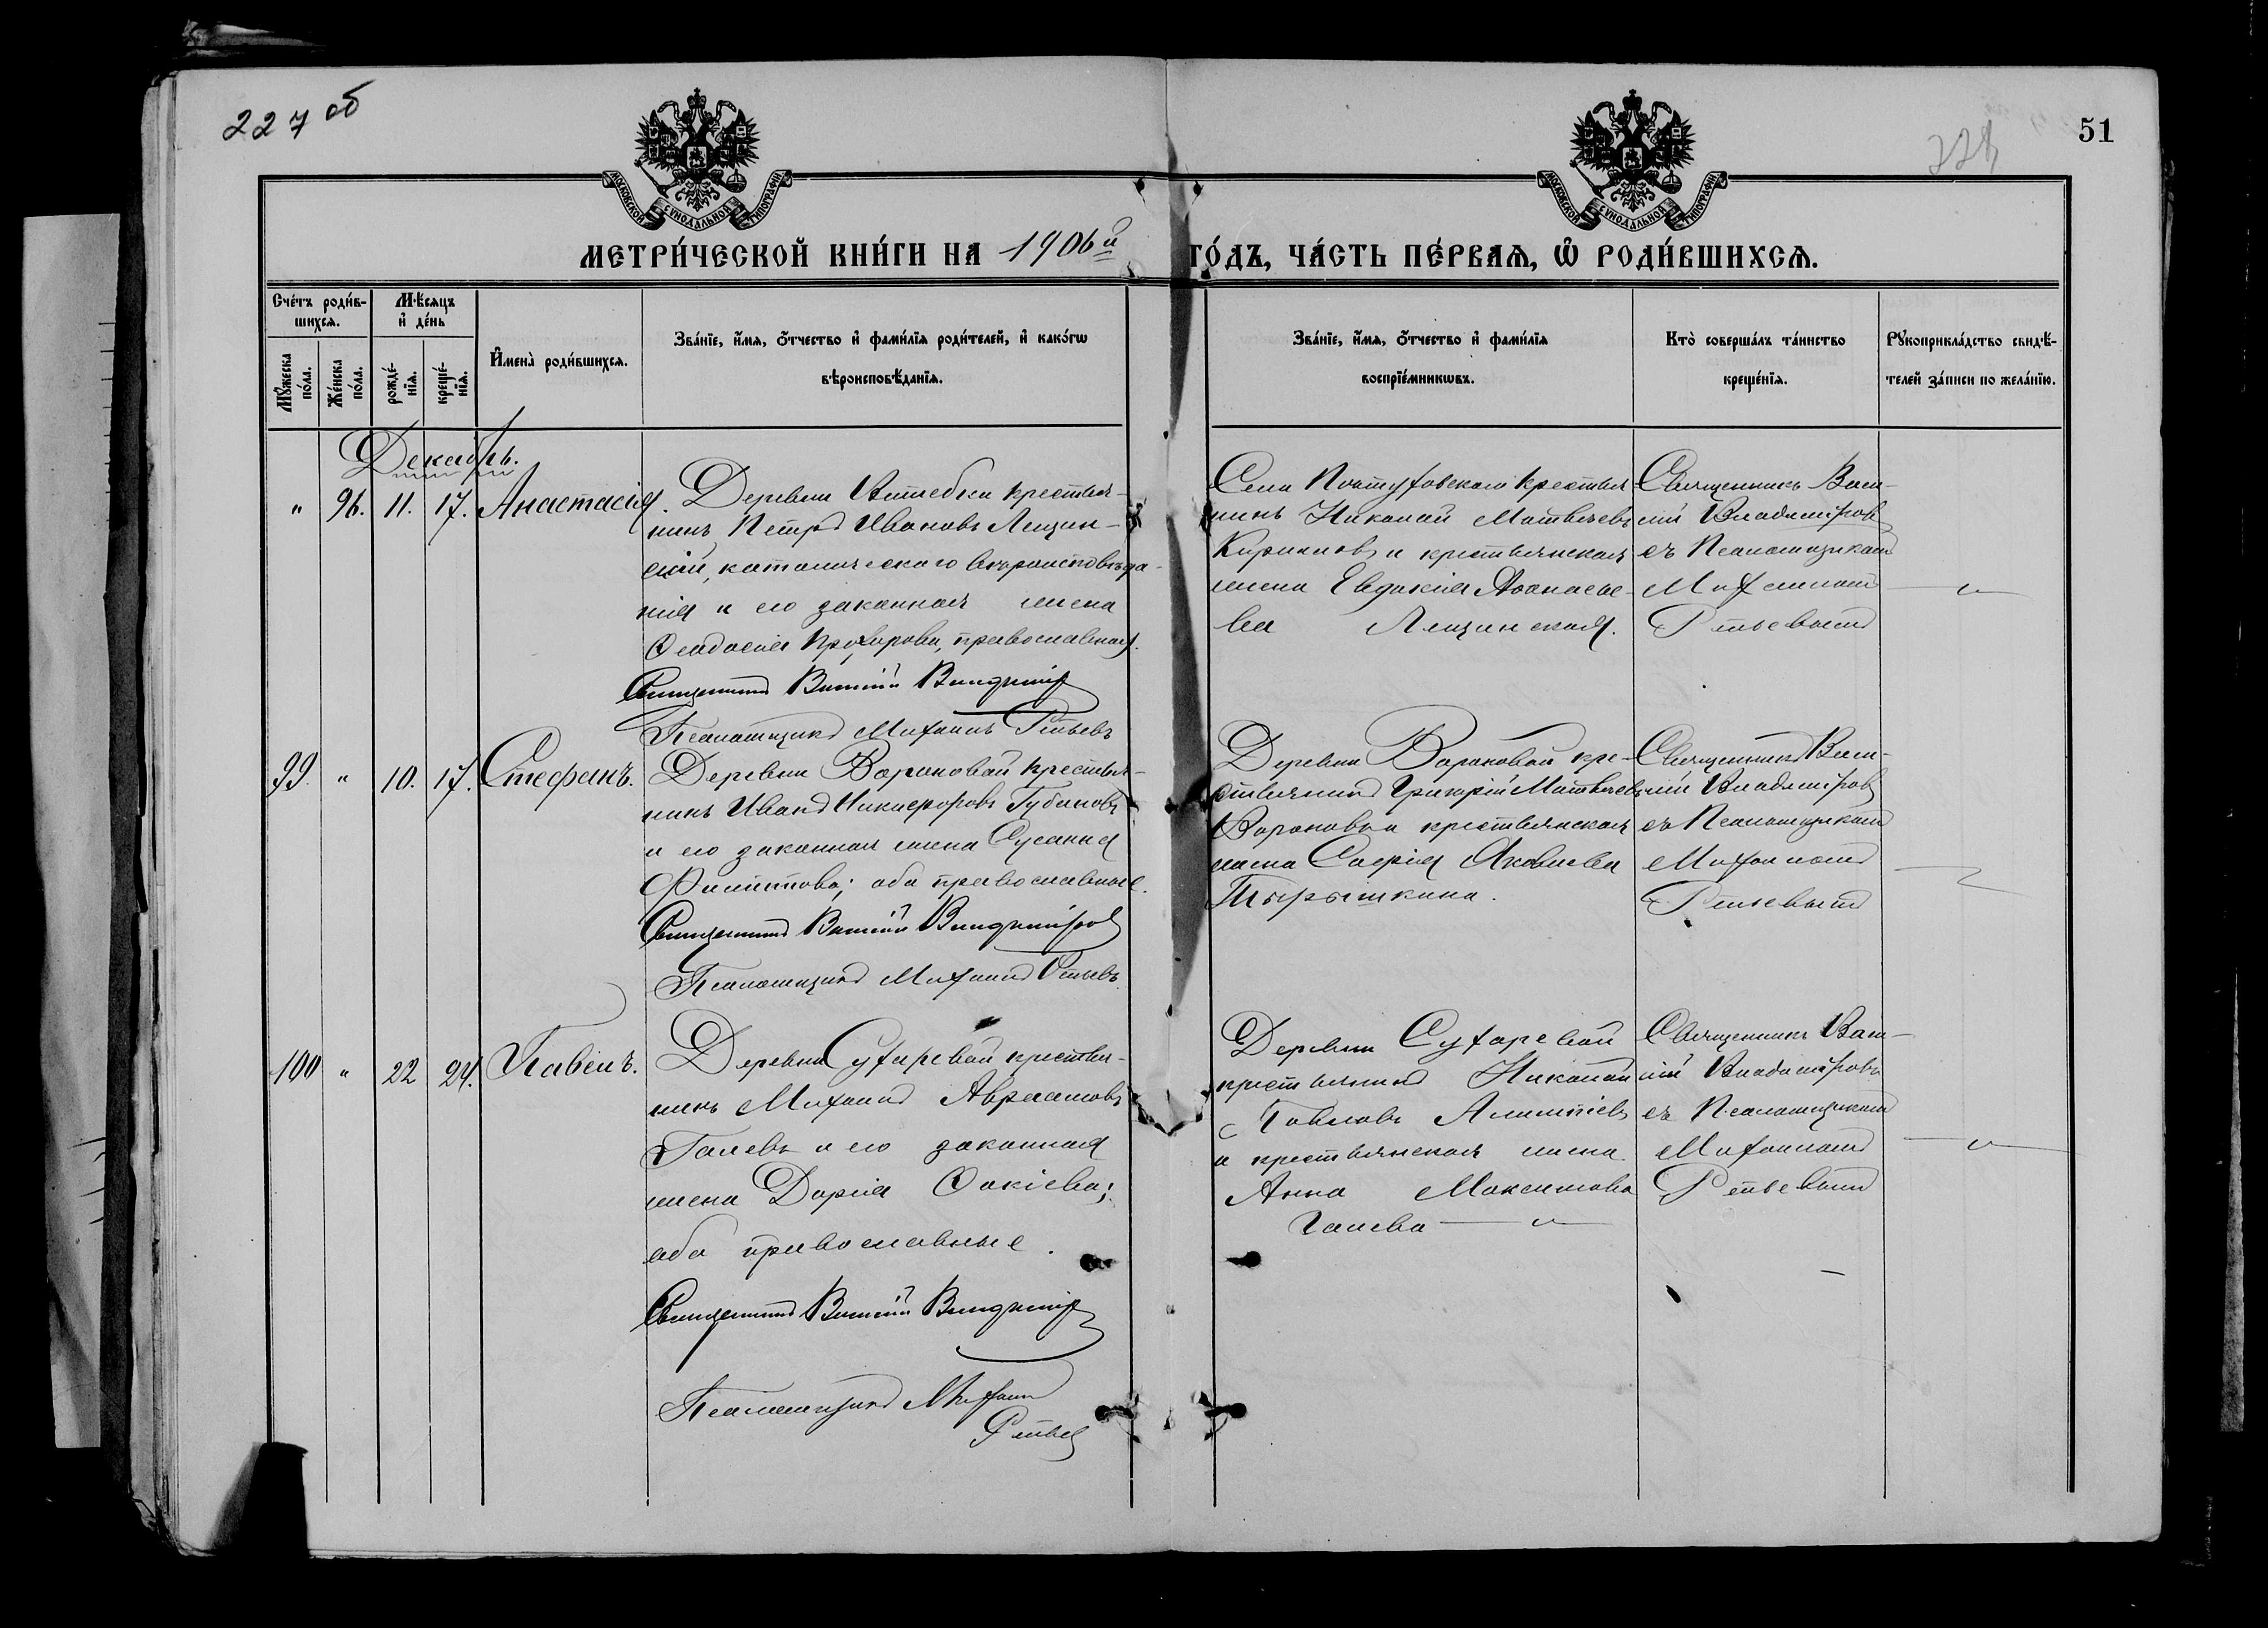 227 об
51
МОСКОВСКОЙ СѴНОДАЛЬНОЙ ТИПОГРАФІИ
МОСКОВСКОЙ СѴНОДАЛЬНОЙ ТИПОГРАФІИ
МЕТРИ́ЧЕСКОЙ КНИ́ГИ НА 1906й ГО́ДЪ, ЧА́СТЬ ПЕ́РВАЯ, Ѽ РОДИ́ВШИХСѦ.
Сче́тъ роди́в-
шихсѧ.
Мѣ́сяцъ
и҆ де́нь
Мꙋ́жеска
по́ла.
Же́нска
по́ла.
рожде́-
нїѧ.
креще́-
нїѧ.
И҆мена̀ роди́вшихсѧ.
Зва́нїе, и҆́мѧ, ѻ҆́тчество и҆ фами́лїѧ роди́телей, и҆ како́гѡ
вѣроисповѣ́данїѧ.
Зва́нїе, и҆́мѧ, ѻ҆́тчество и҆ фами́лїѧ
воспрїе́мникѡвъ.
Кто̀ соверша́лъ та́инство
креще́нїѧ.
Рꙋкоприкла́дство свидѣ́-
телей за́писи по жела́нїю.
Декабрь.
" 96. 11. 17. Анастасія.
Деревни Витебки крестья-
нинъ Петръ Ивановъ Лещин-
скій, католическаго вѣроисповѣда-
нія и его законная жена
Ѳеодосія Прохорова, православная.
Священникъ Василій Владиміровъ
Псаломщикъ Михаилъ
Села крестья-
нинъ Николай Матвѣевъ
Кириловъ и крестьянская
жена Евдокія Аѳанасье-
ва Лещинская.
Священникъ Васи-
лій Владиміровъ
съ Псаломщикомъ
Михаиломъ
99. " 10. 17. Стефанъ.
Деревни Вороновой крестья-
нинъ Иванъ Никифоровъ Губановъ
и его законная жена Сусанна
Филиппова; оба православные.
Священникъ Василій Владиміровъ
Псаломщикъ Михаилъ
Деревни Вороновой кре-
стьянинъ Григорій Матвѣевъ
Вороновъ и крестьянская
жена Софія Яковлева
Тырышкина.
Священникъ Васи-
лій Владиміровъ
съ Псаломщикомъ
Михаиломъ
100 " 22 24. Павелъ.
Деревни Сухаревой крестья-
нинъ Михаилъ Авраамовъ
Галевъ и его законная
жена Дарія Фокіева;
оба православные.
Священникъ Василій Владиміровъ
Псаломщикъ Михаилъ
Деревни Сухаревой
крестьянинъ Николай
Павловъ Алимпіевъ
и крестьянская жена
Анна Максимова
Галева
Священникъ Васи-
лій Владиміровъ
съ Псаломщикомъ
Михаиломъ